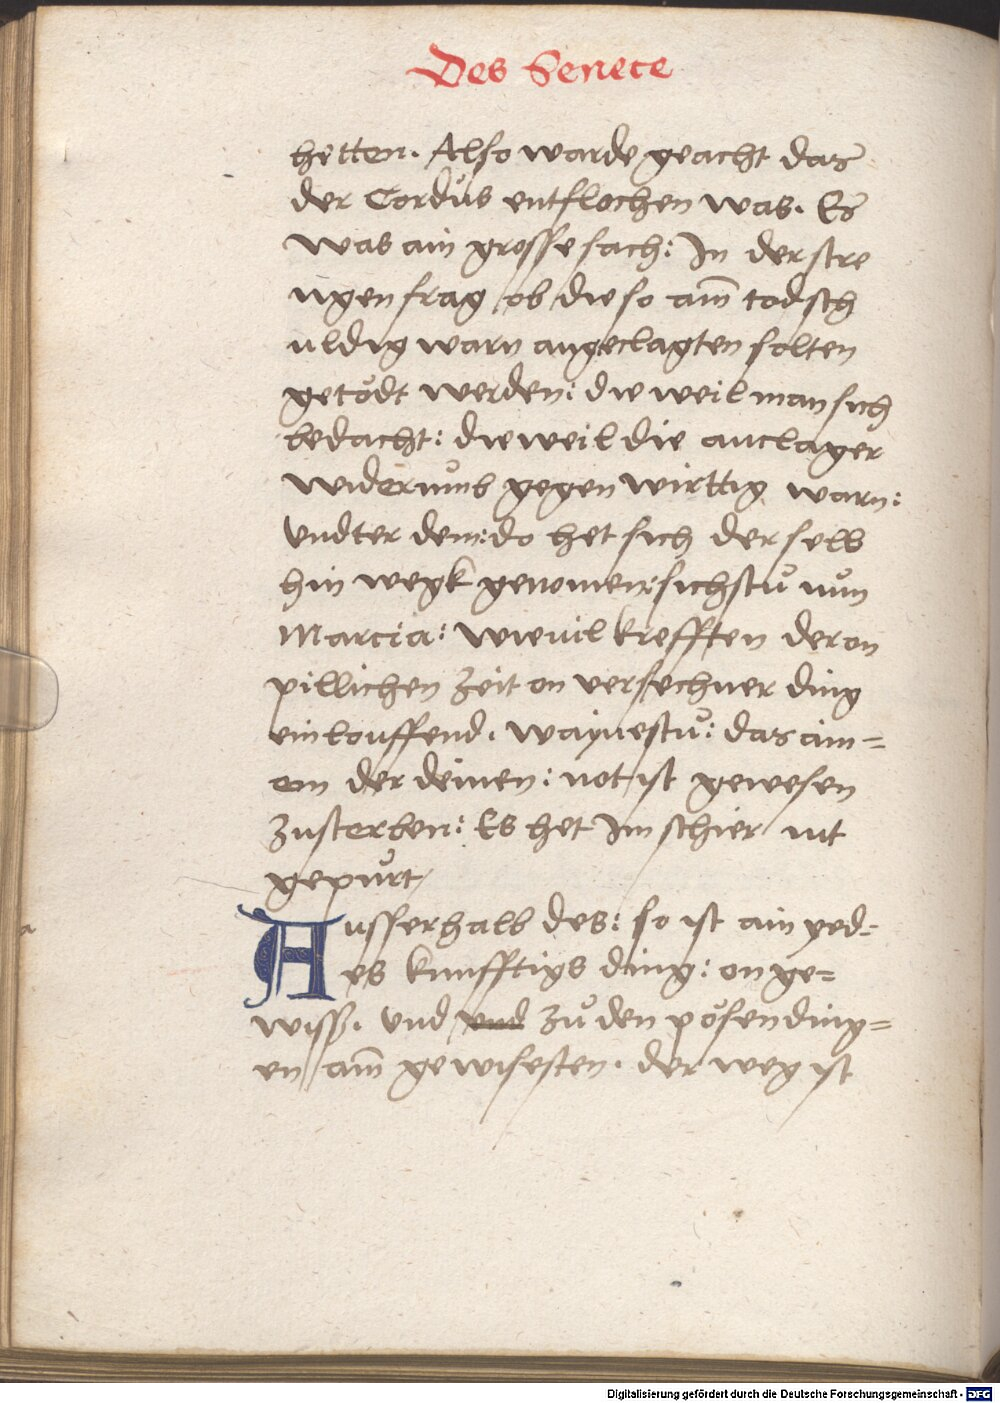 Des Senece
hetten. Also warde geacht das
der Cordůs entflochen was. Es
was ain grosse sach: In der stre
ngen frag ob die so am̄ tod sch
uldig warn angeclagten solten
getödt werden: die weil man sich
bedacht: die weil die anclager
widerumb gegen wirttig warn:
vndter dem: do het sich der selb
hin wegk genomen: sichstů nun
Marcia: wieuil krefften der on
pillichen zeit on versechner ding
einlouffend. waynestů: das aim=
em der deinen: not ist gewesen
zusterben: Es het Im schier nit
gepürt
Ausserhalb des: so ist ain yed=
es kunfftigs ding: on ge=
wiss. vnd vnd zů den pösen ding=
en am̄ gewisesten. der weg ist
Digitalisierung gefördert durch die Deutsche Forschungsgemeinschaft - DFG